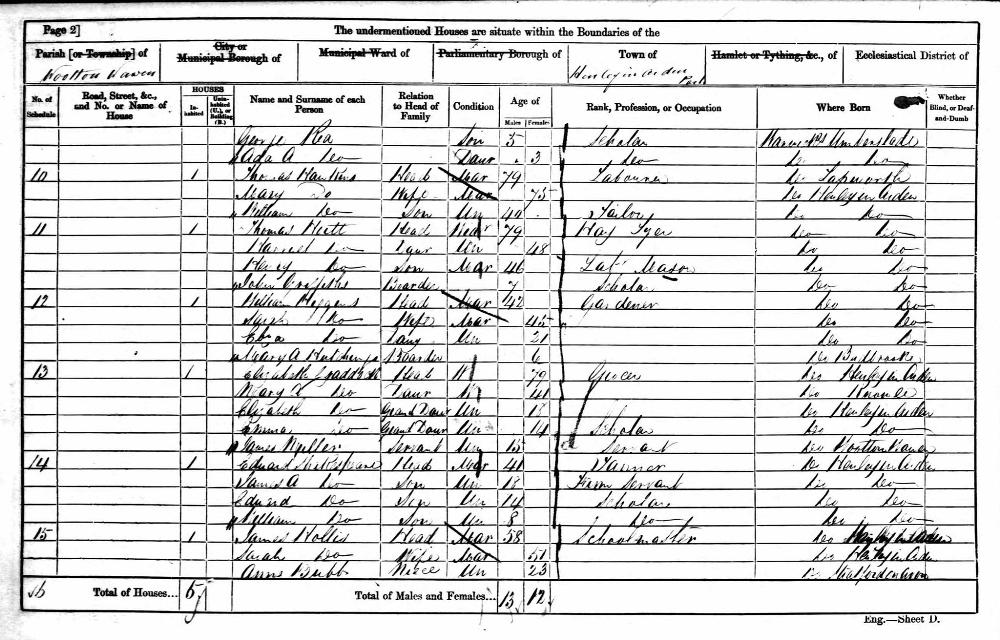 Page 2] The undermentioned Houses are situate within the Boundaries of the
Parish [or Township] of City or Municipal Borough of Municipal Ward of Parliamentary Borough of Town of Hamlet or Tything, &c., of Ecclesiastical District of
Wootton Wawen Henley in Arden
No. of Schedule Road, Street, &c., and No. or Name of House HOUSES Inhabited Uninhabited (U.), or Building (B.) Name and Surname of each Person Relation to Head of Family Condition Age of Males Females Rank, Profession, or Occupation Where Born Whether Blind, or Deaf-and-Dumb
George Rea Son 5 Scholar Umberslade
Ada A Do Daur 3 Do Do Do
10 1 Thomas Hawkins Head Mar 79 Labourer Do Lapworth
Mary Do Wife Mar 75 Do Henley in Arden
William Do Son Un 40 Tailor Do Do
11 1 Thomas Head 79 Hay Tyer Do Do
Harriet Do Daur Un 48 Do Do
Henry Do Son Mar 46 Mason Do Do
John Griffiths Boarder 7 Scholar Do Do
12 1 William Higgens Head Mar 42 Gardener Do Do
Sarah Do Wife Mar 45 Do Do
Do Daur Un 21 Do Do
Mary A Boarder 6 Do
13 1 Elizabeth Head W 79 Grocer Do Henley in Arden
Mary Do Daur 41 Do
Elizabeth Do Grand Daur Un 18 Do Henley in Arden
Emma Do Grand Daur Un 14 Scholar Do Do
James Servant Un 15 Servant Do Wootton Wawen
14 1 Edward Shakespeare Head Mar 41 Do Henley in Arden
James A Do Son Un 18 Farm Servant Do Do
Edward Do Son Un 14 Scholar Do Do
William Do Son Un 8 Do Do Do
15 1 James Hollis Head Mar 58 Schoolmaster Do Henley in Arden
Sarah Do Wife Mar 51 Do Henley in Arden
Anne Bubb Niece Un 23 Do
Total of Houses... 5 Total of Males and Females... 13 12
Eng.—Sheet D.